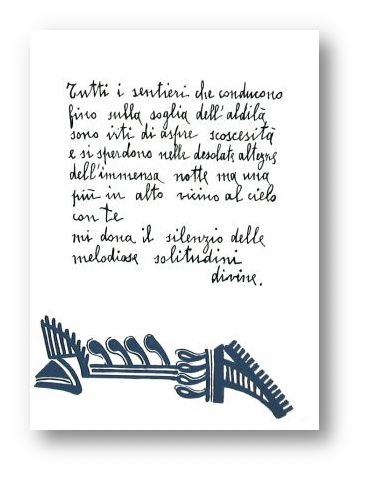 Tutti i sentieri che conducono
fino sulla soglia dell'aldilà
sono irti di aspre scoscesità
e si sperdono nelle desolate altezze
dell'immensa notte ma una
più in alto vicino al cielo
con te
mi dona il silenzio delle
melodiose solitudini
divine.